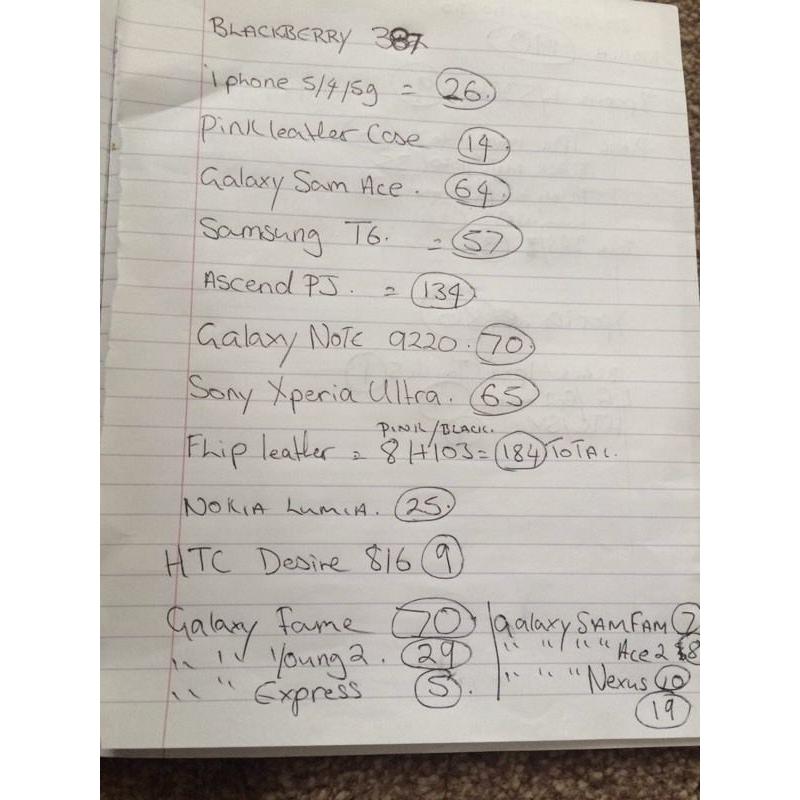 BLACKBERRY 387
iphone 5/4/5g = 26.
Pink leather Case 14
Galaxy Sam Ace. 64
Samsung T6. = 57
Ascend PJ. = 134
Galaxy NoTE 9220. 70
Sony Xperia Ultra. 65
PINK/BLACK.
FLip leather = 81+103 = 184 ToTAL.
NOKIA LUMIA. 25.
HTC Desire 816 9
Galaxy Fame 70
" " Young 2. 29
" " Express 5.
Galaxy SAM FAM 7
" " " " Ace 2 8
" " " Nexus 10
19